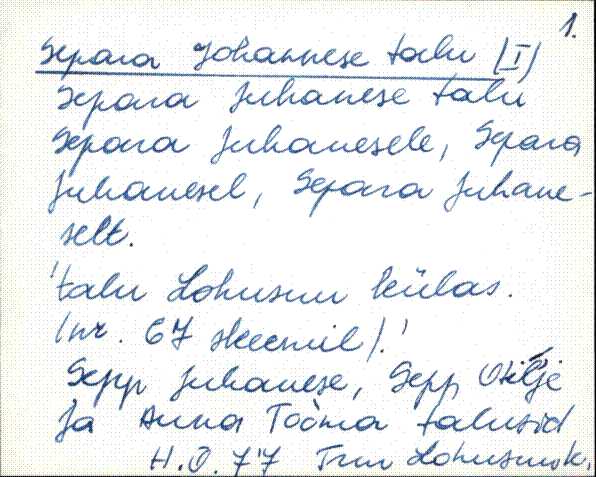 1.
Separa Johannese talu (I)
Separa Juhanese talu
Separa Juhanesele, Separa
Juhanesel, Separa Juhane-
selt.
'talu Lohusuu külas.
(nr. 67 skeemil).'
Sepp Juhanese, Sepp
ja Anna Tooma talusid
H.O. 77 Trm Lohusuu k.